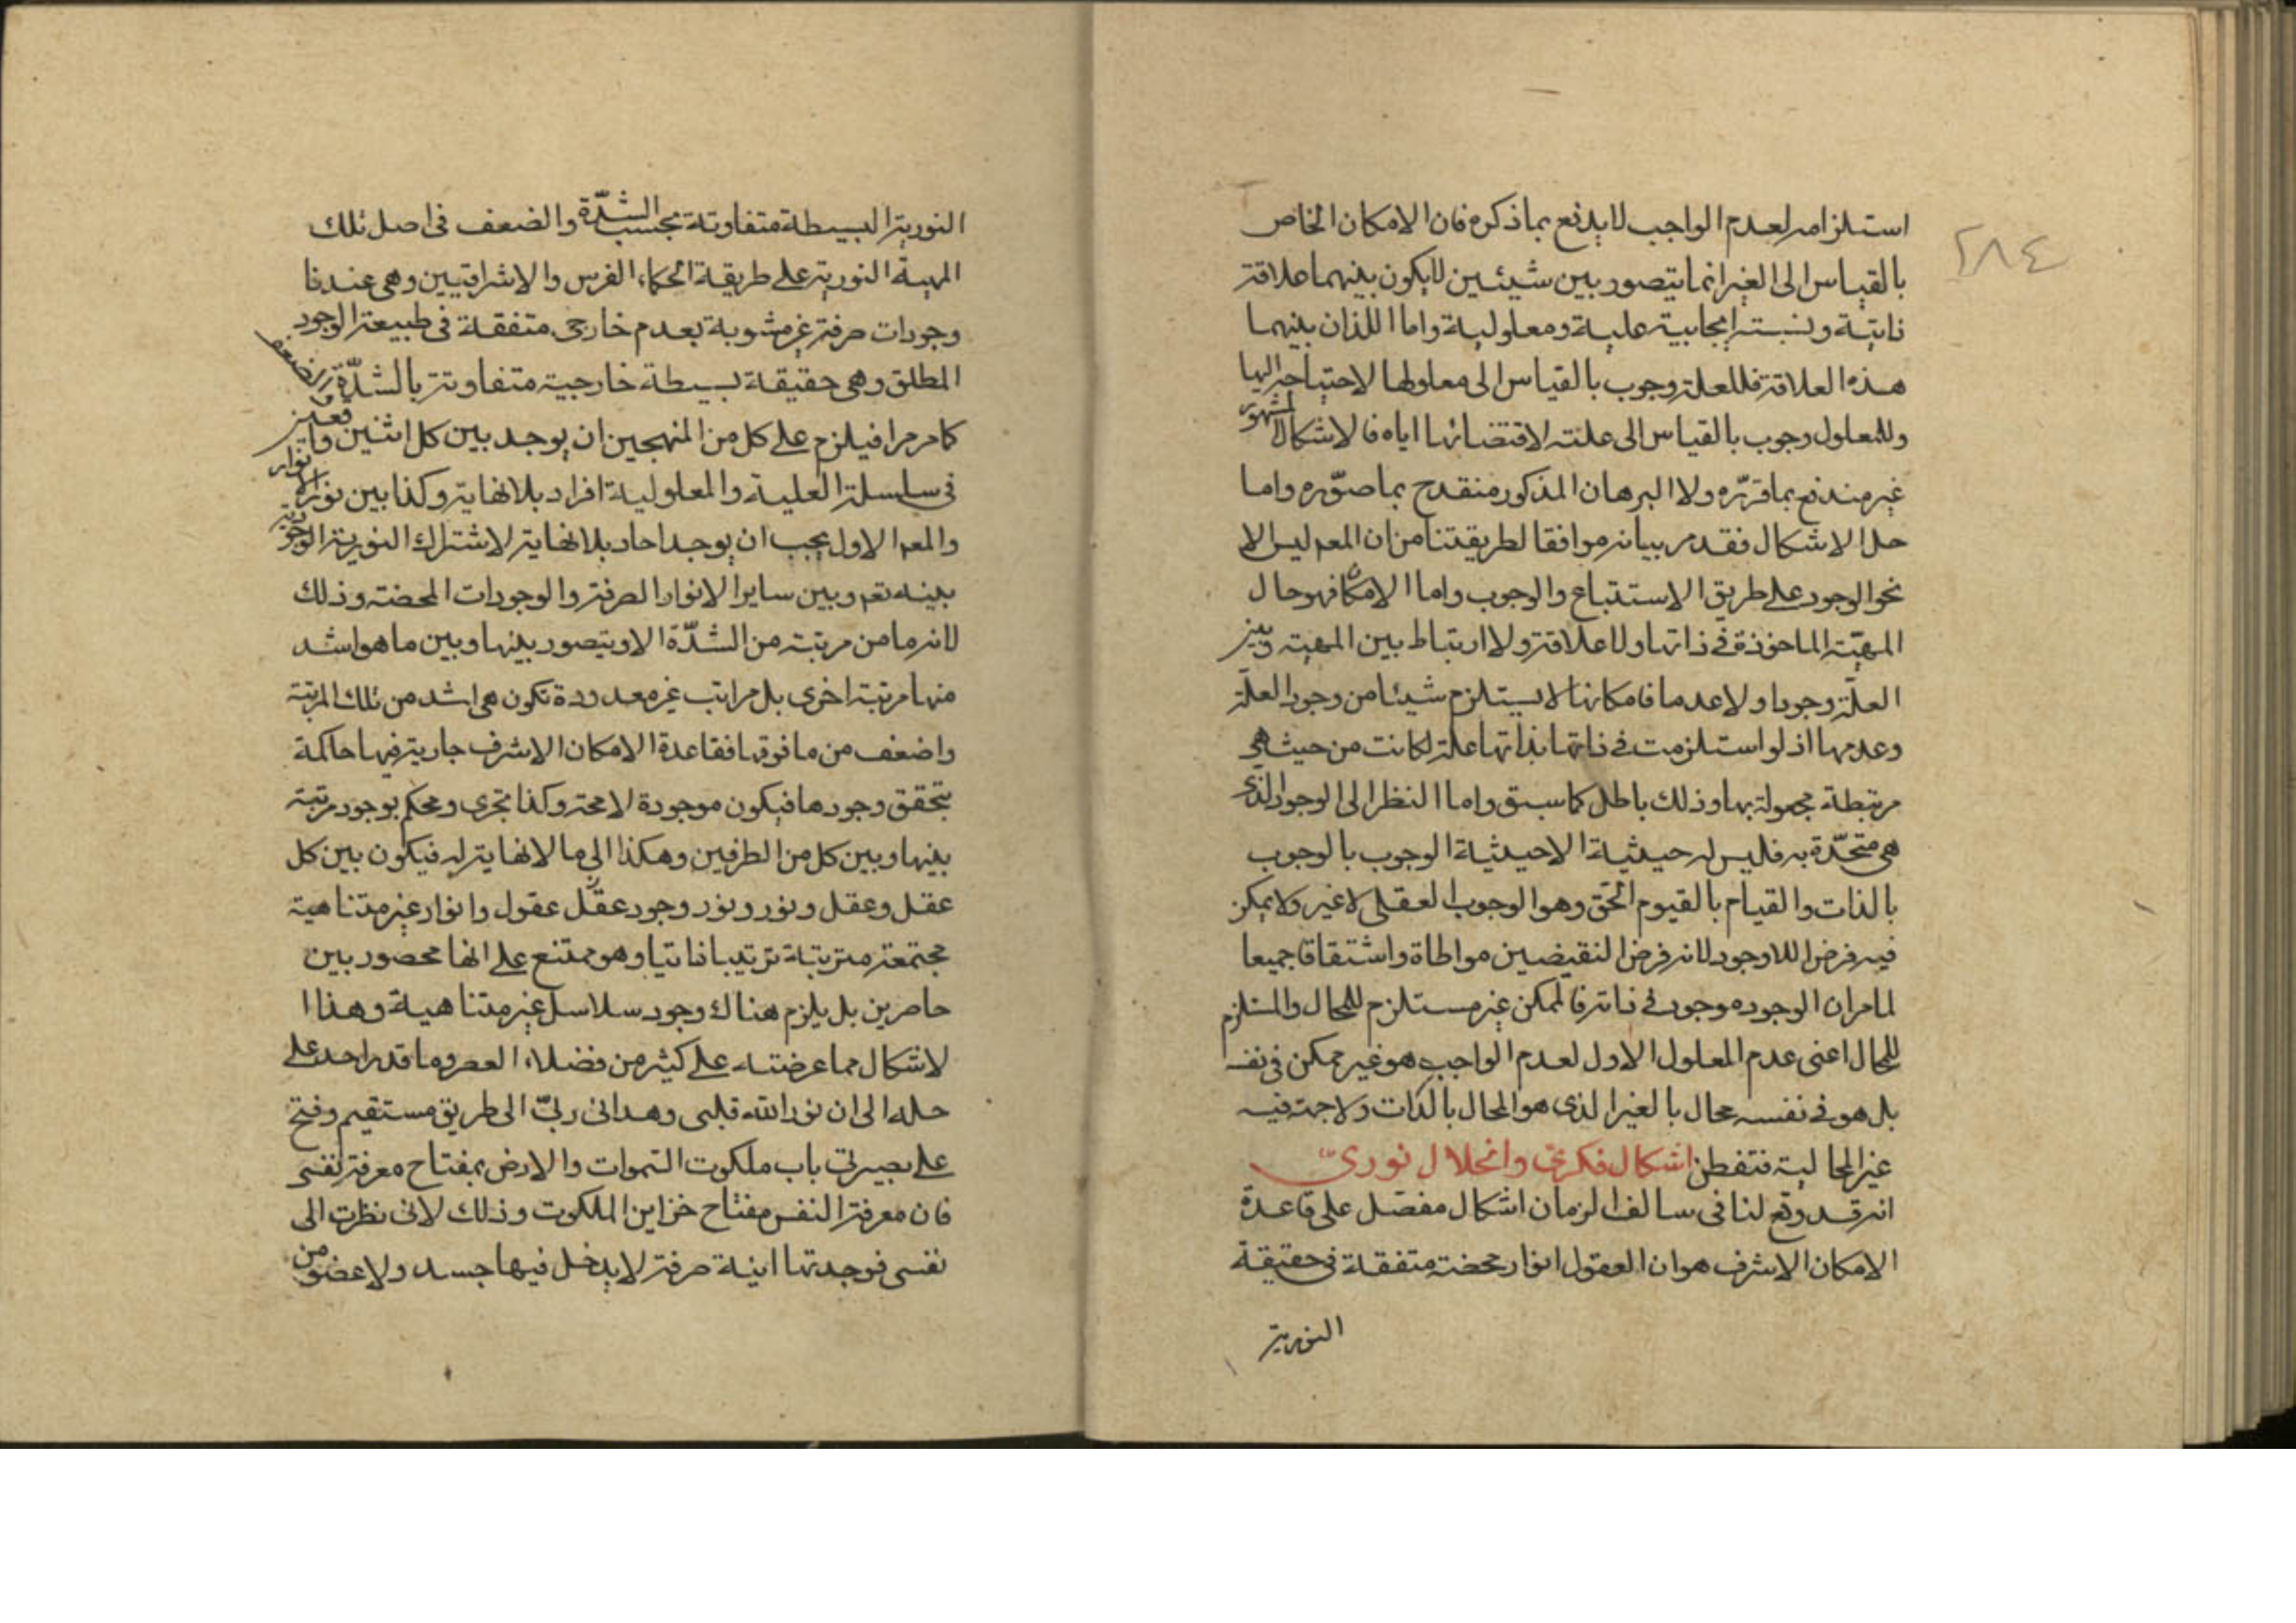 ٢٨٤
استلزامه لعدم الواجب لا يدفع بما ذكره فان الامكان الخاص
بالقياس الى الغير انما يتصور بين شيئين لا يكون بينهما علاقة
ذاتية ونسبته ايجابية علية ومعلولية واما اللذان بينهما
هذه العلاقة فللعلة وجوب بالقياس الى معلولها لاحتياجه اليها
وللمعلول وجوب بالقياس الى علته لاقتضائها اياه فالاشكال المشهور
غير مندفع بما قرّره ولا البرهان المذكور منقدح بما صوّره واما
حل الاشكال فقد مر بيانه موافقا لطريقتنا من ان المعم ليس الا
نحو الوجود على طريق الاستتباع والوجوب واما الامكان فهو حال
المهيّة الماخوذة في ذاتها ولا علاقة ولا ارتباط بين المهية وبين
العلّة وجودا ولا عدما فامكانها لا يستلزم شيئا من وجود العلّة
وعدمها اذ لو استلزمت في ذاتها بذاتها علة لكانت من حيث هي
مرتبطة مجعولة بها وذلك باطل كما سبق واما النظر الى الوجود الذي
هي متحّدة به فليس له حيثية الا حيثية الوجوب بالوجوب
بالذات والقيام بالقيوم الحق وهو الوجوب العقلى لا غير ولا يمكن
فيه فرض اللاوجود لانه فرض النقيضين مواطاة واشتقاقا جميعا
لما مر ان الوجود موجود في ذاته فالممكن غير مستلزم للمحال والمستلزم
للمحال اعنى عدم المعلول الاول لعدم الواجب هو غير ممكن في نفسه
بل هو في نفسه محال بالغير الذى هو المحال بالذات ولا جهة فيه
غير المحالية فتفطن اشكال فكرىّ وانحلال نورىّ
انه قد وقع لنا فى سالف الزمان اشكال مفصل على قاعدة
الامكان الاشرف هو ان العقول انوار محضة متفقة فى حقيقة
النورية
النورية البسيطة متفاوتة بحسب الشدّة والضعف فى اصل تلك
المهية النورية على طريقة الحكماء الفرس والاشراقيين وهى عندنا
وجودات صرفة غير مشوبة بعدم خارجى متفقة فى طبيعة الوجود
المطلق وهى حقيقة بسيطة خارجية متفاوتة بالشدّة والضعف
كما مر مرا فيلزم على كل من المنهجين ان يوجد بين كل اثنين واقعين
فى سلسلة العلية والمعلولية افراد بلا نهاية وكذا بين نور الانوار
والمعم الاول يجب ان يوجد احاد بلا نهاية لاشتراك النورية الوجودية
بينه تعم وبين ساير الانوار الصرفة والوجودات المحضة وذلك
لانه ما من مرتبة من الشدّة الا ويتصور بينها وبين ما هو اشد
منها مرتبة اخرى بل مراتب غير معدودة تكون هى اشد من تلك المرتبة
واضعف من ما فوقها فقاعدة الامكان الاشرف جارية فيها حاكمة
بتحقق وجودها فيكون موجودة لا محة وكذا تجرى ومحكم بوجود مرتبة
بينها وبين كل من الطرفين وهكذا الى ما لا نهاية له فيكون بين كل
عقل وعقل ونور ونور وجود عقل عقول وانوار غير متناهية
مجتمعة مترتبة ترتيبا ذاتيا وهو ممتنع على انها محصور بين
حاصرين بل يلزم هناك وجود سلاسل غير متناهية وهذا ا
لاشكال مما عرضته على كثير من فضلاء العصر وما قدر احد على
حله الى ان نور الله قلبى وهدانى ربّى الى طريق مستقيم وفتح
على بصيرتى باب ملكوت السموات والارض بمفتاح معرفة نفسى
فان معرفة النفس مفتاح خزاين الملكوت وذلك لانى نظرت الى
نفسى فوجدتها انية صرفة لا يدخل فيها جسد ولا عضو من